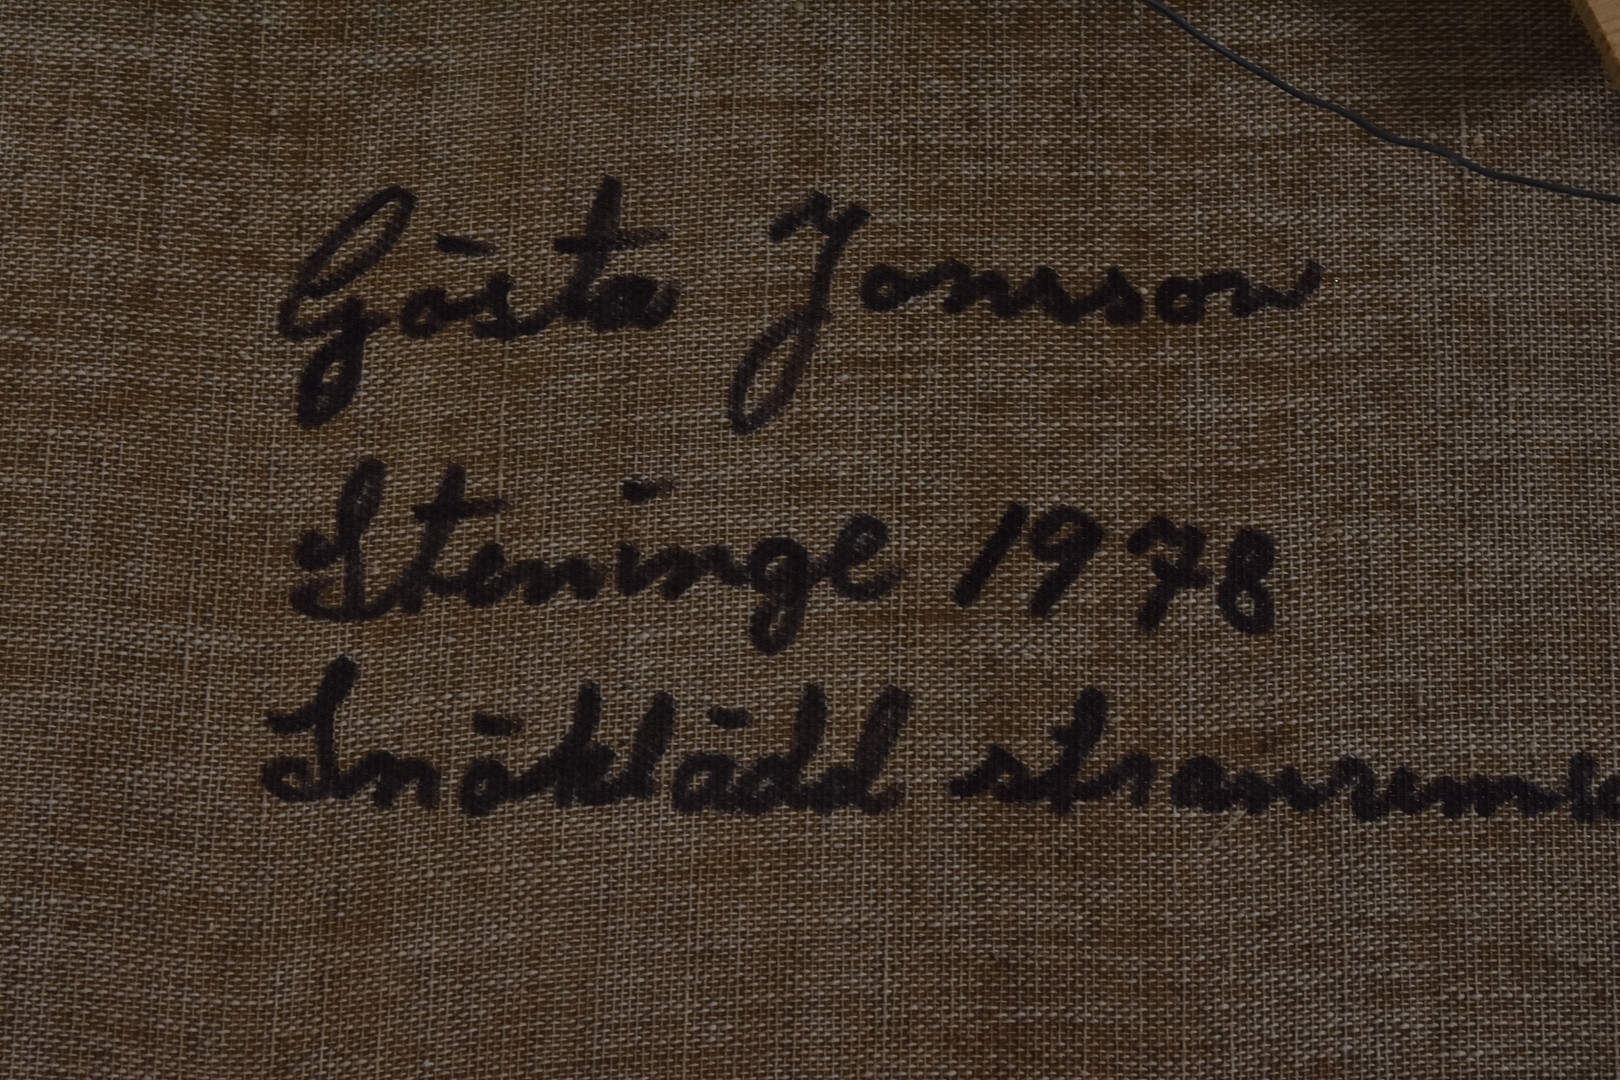 Gösta Jonsson
Steninge 1978
Snöklädd